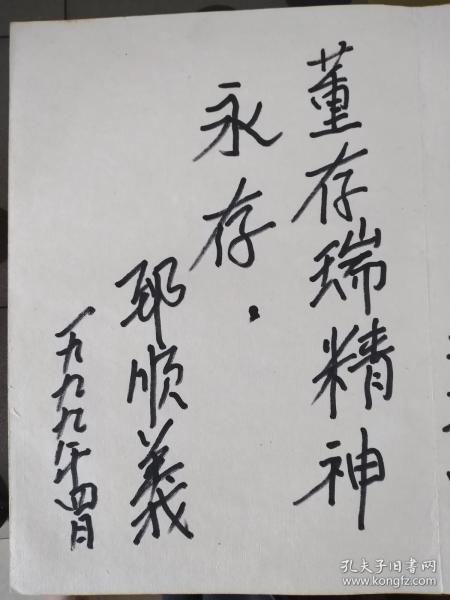 董存瑞精神
永存.
郅顺義
一九九九年四月
孔夫子旧书网
www.kongfz.com